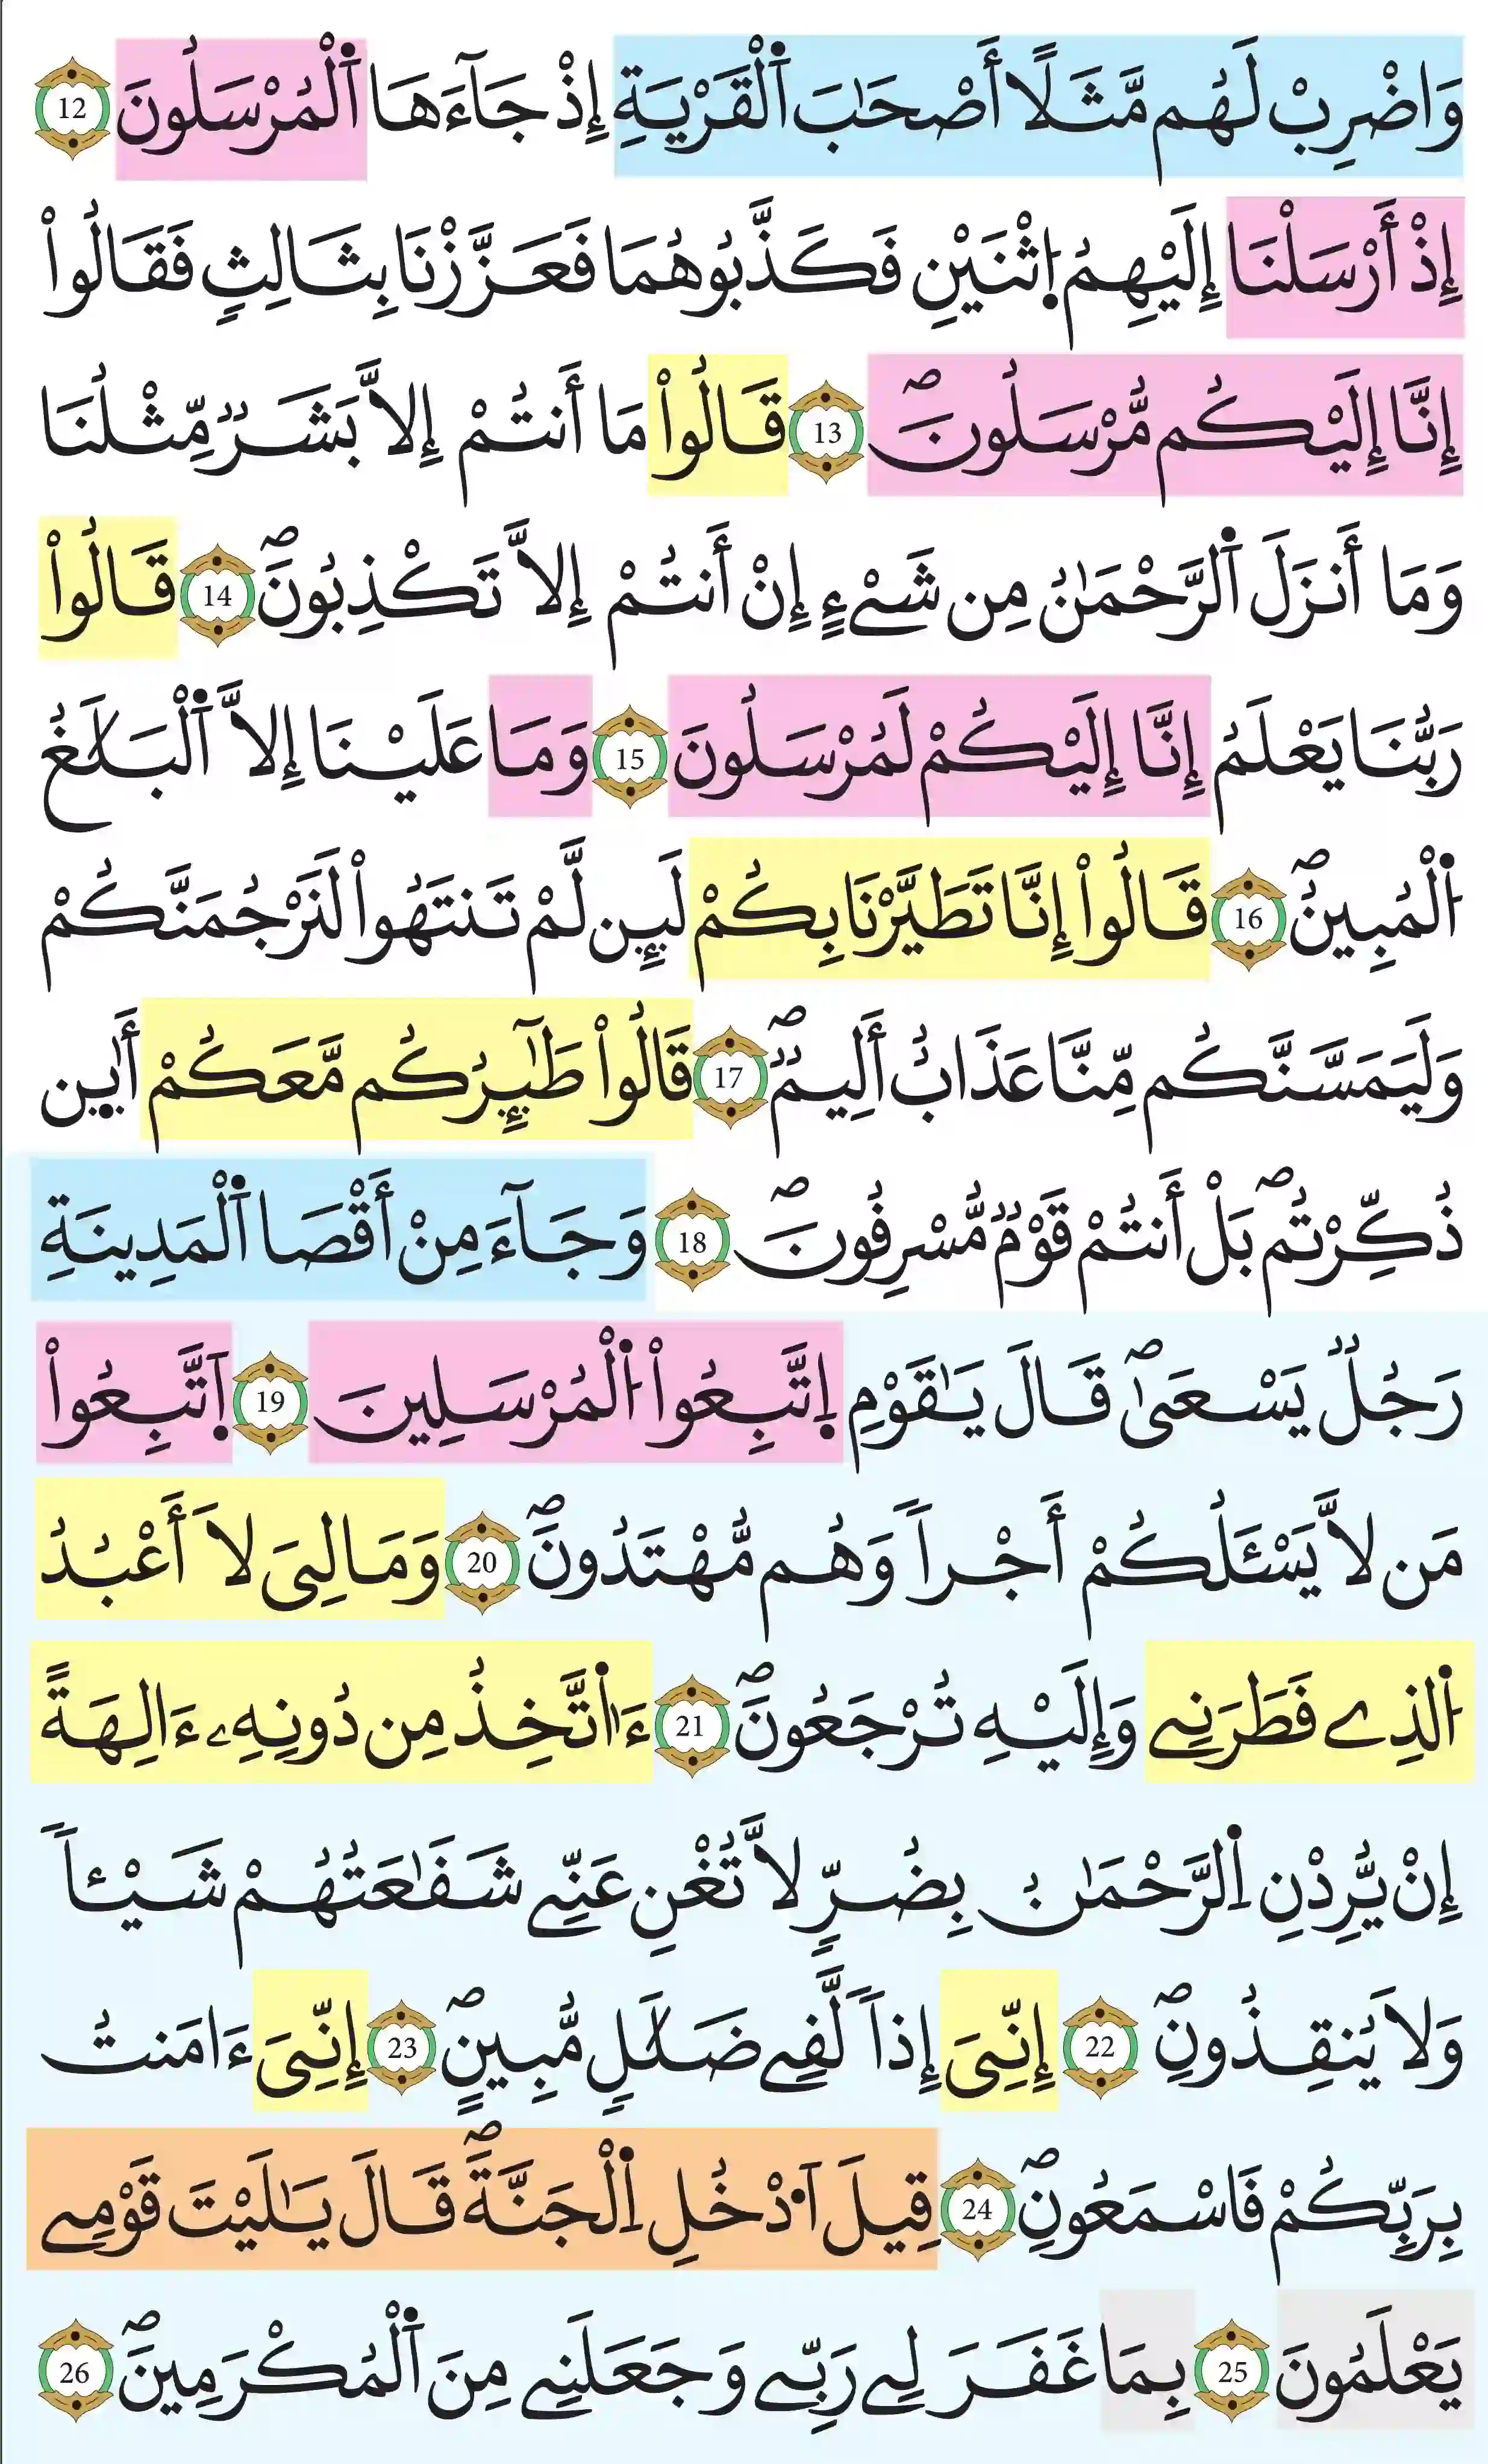 وَاضْرِبْ لَهُم مَّثَلًا أَصْحَٰبَ اَ۬لْقَرْيَةِ إِذْ جَآءَهَا اَ۬لْمُرْسَلُونَ 12
إِذْ أَرْسَلْنَا إِلَيْهِمُ اُ۪ثْنَيْنِ فَكَذَّبُوهُمَا فَعَزَّزْنَا بِثَالِثٍ فَقَالُواْ
إِنَّا إِلَيْكُم مُّرْسَلُونَۖ 13 قَالُواْ مَا أَنتُمْ إِلَّا بَشَرٌ مِّثْلُنَا
وَمَا أَنزَلَ اَ۬لرَّحْمَٰنُ مِن شَےْءٍ إِنْ أَنتُمْ إِلَّا تَكْذِبُونَۖ 14 قَالُواْ
رَبُّنَا يَعْلَمُ إِنَّا إِلَيْكُمْ لَمُرْسَلُونَ 15 وَمَا عَلَيْنَا إِلَّا اَ۬لْبَلَٰغُ
اُ۬لْمُبِينُۖ 16 قَالُواْ إِنَّا تَطَيَّرْنَا بِكُمْ لَئِن لَّمْ تَنتَهُواْ لَنَرْجُمَنَّكُمْ
وَلَيَمَسَّنَّكُم مِّنَّا عَذَابٌ أَلِيمٌۖ 17 قَالُواْ طَٰٓئِرُكُم مَّعَكُمْ أَئِن
ذُكِّرْتُمۖ بَلْ أَنتُمْ قَوْمٌ مُّسْرِفُونَۖ 18 وَجَآءَ مِنْ أَقْصَا اَ۬لْمَدِينَةِ
رَجُلٌ يَسْعَىٰۖ قَالَ يَٰقَوْمِ اِ۪تَّبِعُواْ اُ۬لْمُرْسَلِينَ 19 اَ۪تَّبِعُواْ
مَن لَّا يَسْـَٔلُكُمْ أَجْراً وَهُم مُّهْتَدُونَۖ 20 وَمَا لِيَ لَا أَعْبُدُ
اُ۬لذِے فَطَرَنِے وَإِلَيْهِ تُرْجَعُونَۖ 21 ءَا۬تَّخِذُ مِن دُونِهِۦ ءَالِهَةً
إِنْ يُّرِدْنِ اِ۬لرَّحْمَٰنُ بِضُرٍّ لَّا تُغْنِ عَنِّے شَفَٰعَتُهُمْ شَيْـٔاً
وَلَا يُنقِذُونِۖ 22 إِنِّيَ إِذاً لَّفِے ضَلَٰلٍ مُّبِينٍۖ 23 إِنِّيَ ءَامَنتُ
بِرَبِّكُمْ فَاسْمَعُونِۖ 24 قِيلَ اَ۟دْخُلِ اِ۬لْجَنَّةَۖ قَالَ يَٰلَيْتَ قَوْمِے
يَعْلَمُونَ 25 بِمَا غَفَرَ لِے رَبِّے وَجَعَلَنِے مِنَ اَ۬لْمُكْرَمِينَۖ 26